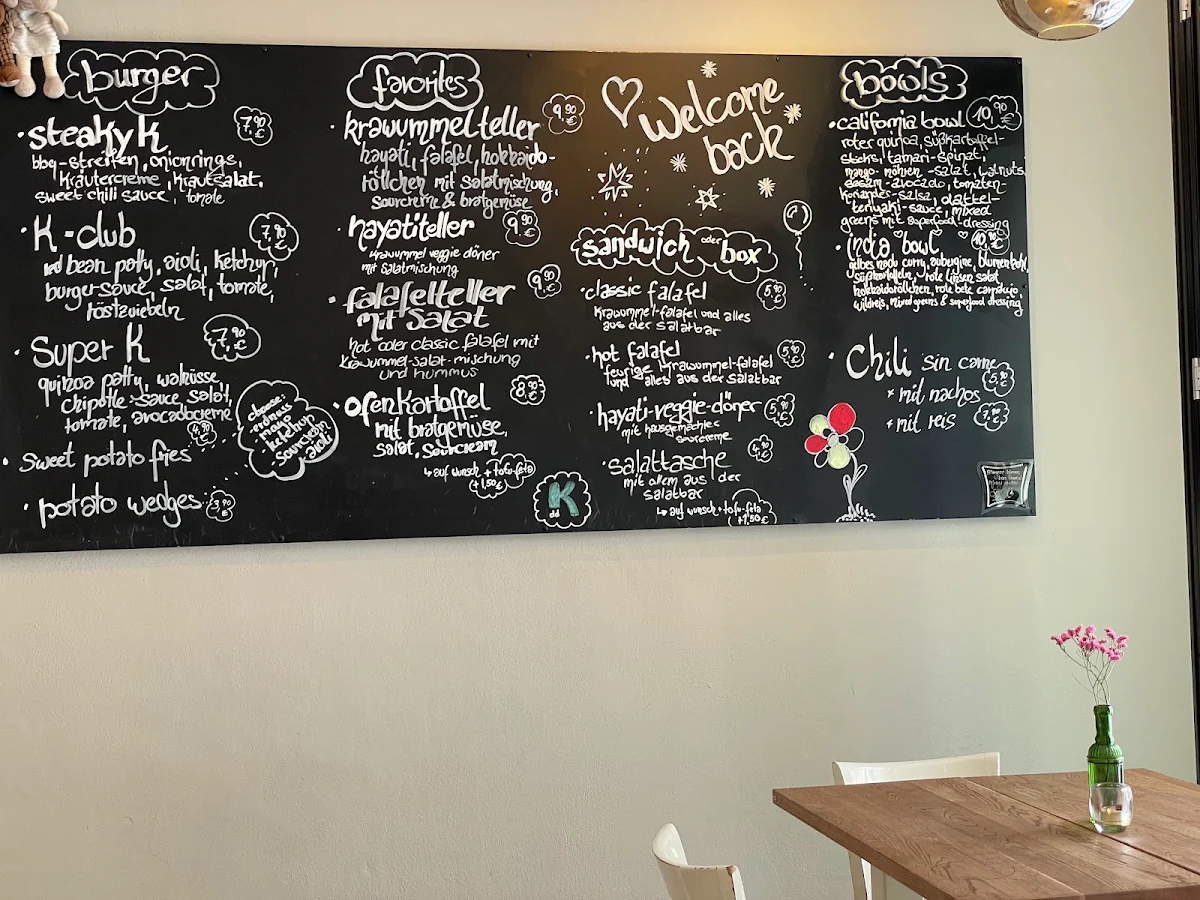 burger
steaky K 7,90 €
bbq-streifen, onionrings,
kräutercreme, krautsalat,
sweet chili sauce, tomate
K-club 7,90 €
red bean patty, aioli, ketchup,
burger-sauce, salat, tomate,
röstzwiebeln
Super K 7,90 €
quinoa patty, walnüsse,
chipotle-sauce, salat,
tomate, avocadocreme
sweet potato fries 4,90 €
potato wedges 3,90 €
choose:
mayo
ketchup
sourcream
aioli
favorites
krawummelteller 9,90 €
hayati, falafel, hokkaido-
röllchen mit salatmischung,
sourcreme & bratgemüse
hayatiteller 9,90 €
krawummel veggie döner
mit salatmischung
falafelteller 9,90 €
mit salat
hot oder classic falafel mit
krawummel-salat-mischung
und hummus
ofenkartoffel 8,90 €
mit bratgemüse,
salat, sourcream
↳ auf wunsch + tofu-feta
(+1,50€)
K
dd
Welcome
back
sandwich oder box
classic falafel 5,90 €
krawummel-falafel und alles
aus der salatbar
hot falafel 5,90 €
feurige krawummel-falafel
und alles aus der salatbar
hayati-veggie-döner 5,90 €
mit hausgemachter
sourcreme
salattasche 4,90 €
mit allem aus der
salatbar
↳ auf wunsch + tofu-feta
+1,50€
bowls
california bowl 10,90 €
roter quinoa, süßkartoffel-
sticks, tamari-spinat,
mango-möhren-salat, walnuts,
sesam-avocado, tomaten-
koriander-salsa, dattel-
teriyaki-sauce, mixed
greens mit superfood-dressing
india bowl 10,90 €
gelbes nadu curry, aubergine, blumenkohl,
süßkartoffeln, rote linsen salat,
hokkaidoröllchen, rote bete carpaccio,
wildreis, mixed greens & superfood dressing
Chili sin carne
* mit nachos 5,90 €
* mit reis 7,90 €